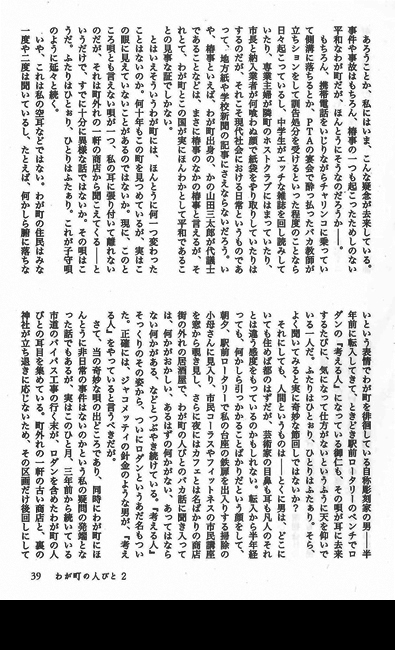 あろうことか、私にはいま、こんな疑念が去来している。
事件や事故はもちろん、椿事の一つも起こったためしのない
平和なわが町だが、ほんとうにそうなのだろうか――。
もちろん、携帯電話をいじりながらチャリンコに乗ってい
て側溝に落ちるとか、PTAの宴会で酔っ払ったバカ教師が
立ちションをして訓告処分を受けるといった程度のことなら
日々起こっているし、中学生がエッチな雑誌を回し読みして
いたり、専業主婦が隣町のホストクラブにはまっていたり、
市長と納入業者が何喰わぬ顔で紙袋をやり取りしていたりは
するのだが、それこそ現代社会における日常というものであ
って、地方紙や学校新聞の記事にさえならないだろう。い
や、椿事といえば、わが町出身の、かの山田三太郎が代議士
であることなどは、まさに椿事のなかの椿事と言えるが、そ
れとて、わが町とこの国が実にほんわかとして平和であるこ
との見事な証でしかない。
とはいえそういうわが町には、ほんとうに何一つ変わった
ことはないのか。何十年もこの町を見つめているが、実はこ
の眼に見えていないことがあるのではないか。現に、このと
ころ唄とも言えない唄が一つ、私の耳に張り付いて離れない
のだが、それは町外れの一軒の商店から聞こえてくる――と
いうだけで、すでに十分に異様な話ではないか。その唄はこ
うだ。ふたりはひとおり、ひとりはふたあり。これが子守唄
のように延々と続く。
いや、これは私の空耳などではない。わが町の住民はみな
一度や二度は聞いているし、たとえば、何かしら腑に落ちな
いという表情でわが町を徘徊している自称彫刻家の男――半
年前に転入してきて、ときどき駅前ロータリーのベンチでロ
ダンの『考える人』になっている御仁も、その唄が耳に去来
するたびに、気になって仕方がないというふうに天を仰いで
いる一人だ。ふたりはひとおり、ひとりはふたあり。そら、
よく聞いてみると実に奇妙な節回しではないか？
それにしても、人間というものは――とくに男は、どこに
いても住めば都のはずだが、芸術家の目鼻も耳も凡人のそれ
とは違う感度をもっているのかもしれない。転入から半年経
っても、何かしら引っかかることばかりだという顔をして、
朝夕、駅前ロータリーで私の台座の鉄扉を出入りする掃除の
小母さんに見入り、市民コーラスやフィットネスの市民講座
を窓から覗き見し、さらに夜にはカフェとは名ばかりの商店
街の外れの居酒屋で、わが町の人びとのバカ話に聞き入って
は、何かがおかしい、あるはずの何かがない、あってはなら
ない何かがある、などとつぶやき続けている。『考える人』
そっくりのその姿から、ついにロダンというあだ名もつい
た。正確には、ジャコメッティの針金のような男が、『考え
る人』をやっていると言うべきだが。
さて、当の奇妙な唄の出どころであり、同時にわが町にほ
んとうに非日常の事件はないのかという私の疑問の発端とな
った話でもあるが、実はこのひと月、三年前から続いている
市道のバイパス工事の行く末が、ロダンを含めたわが町の人
びとの耳目を集めている。町外れの一軒の古い商店と、裏の
神社が立ち退きに応じないため、その区画だけ後回しにして
39　わが町の人びと2